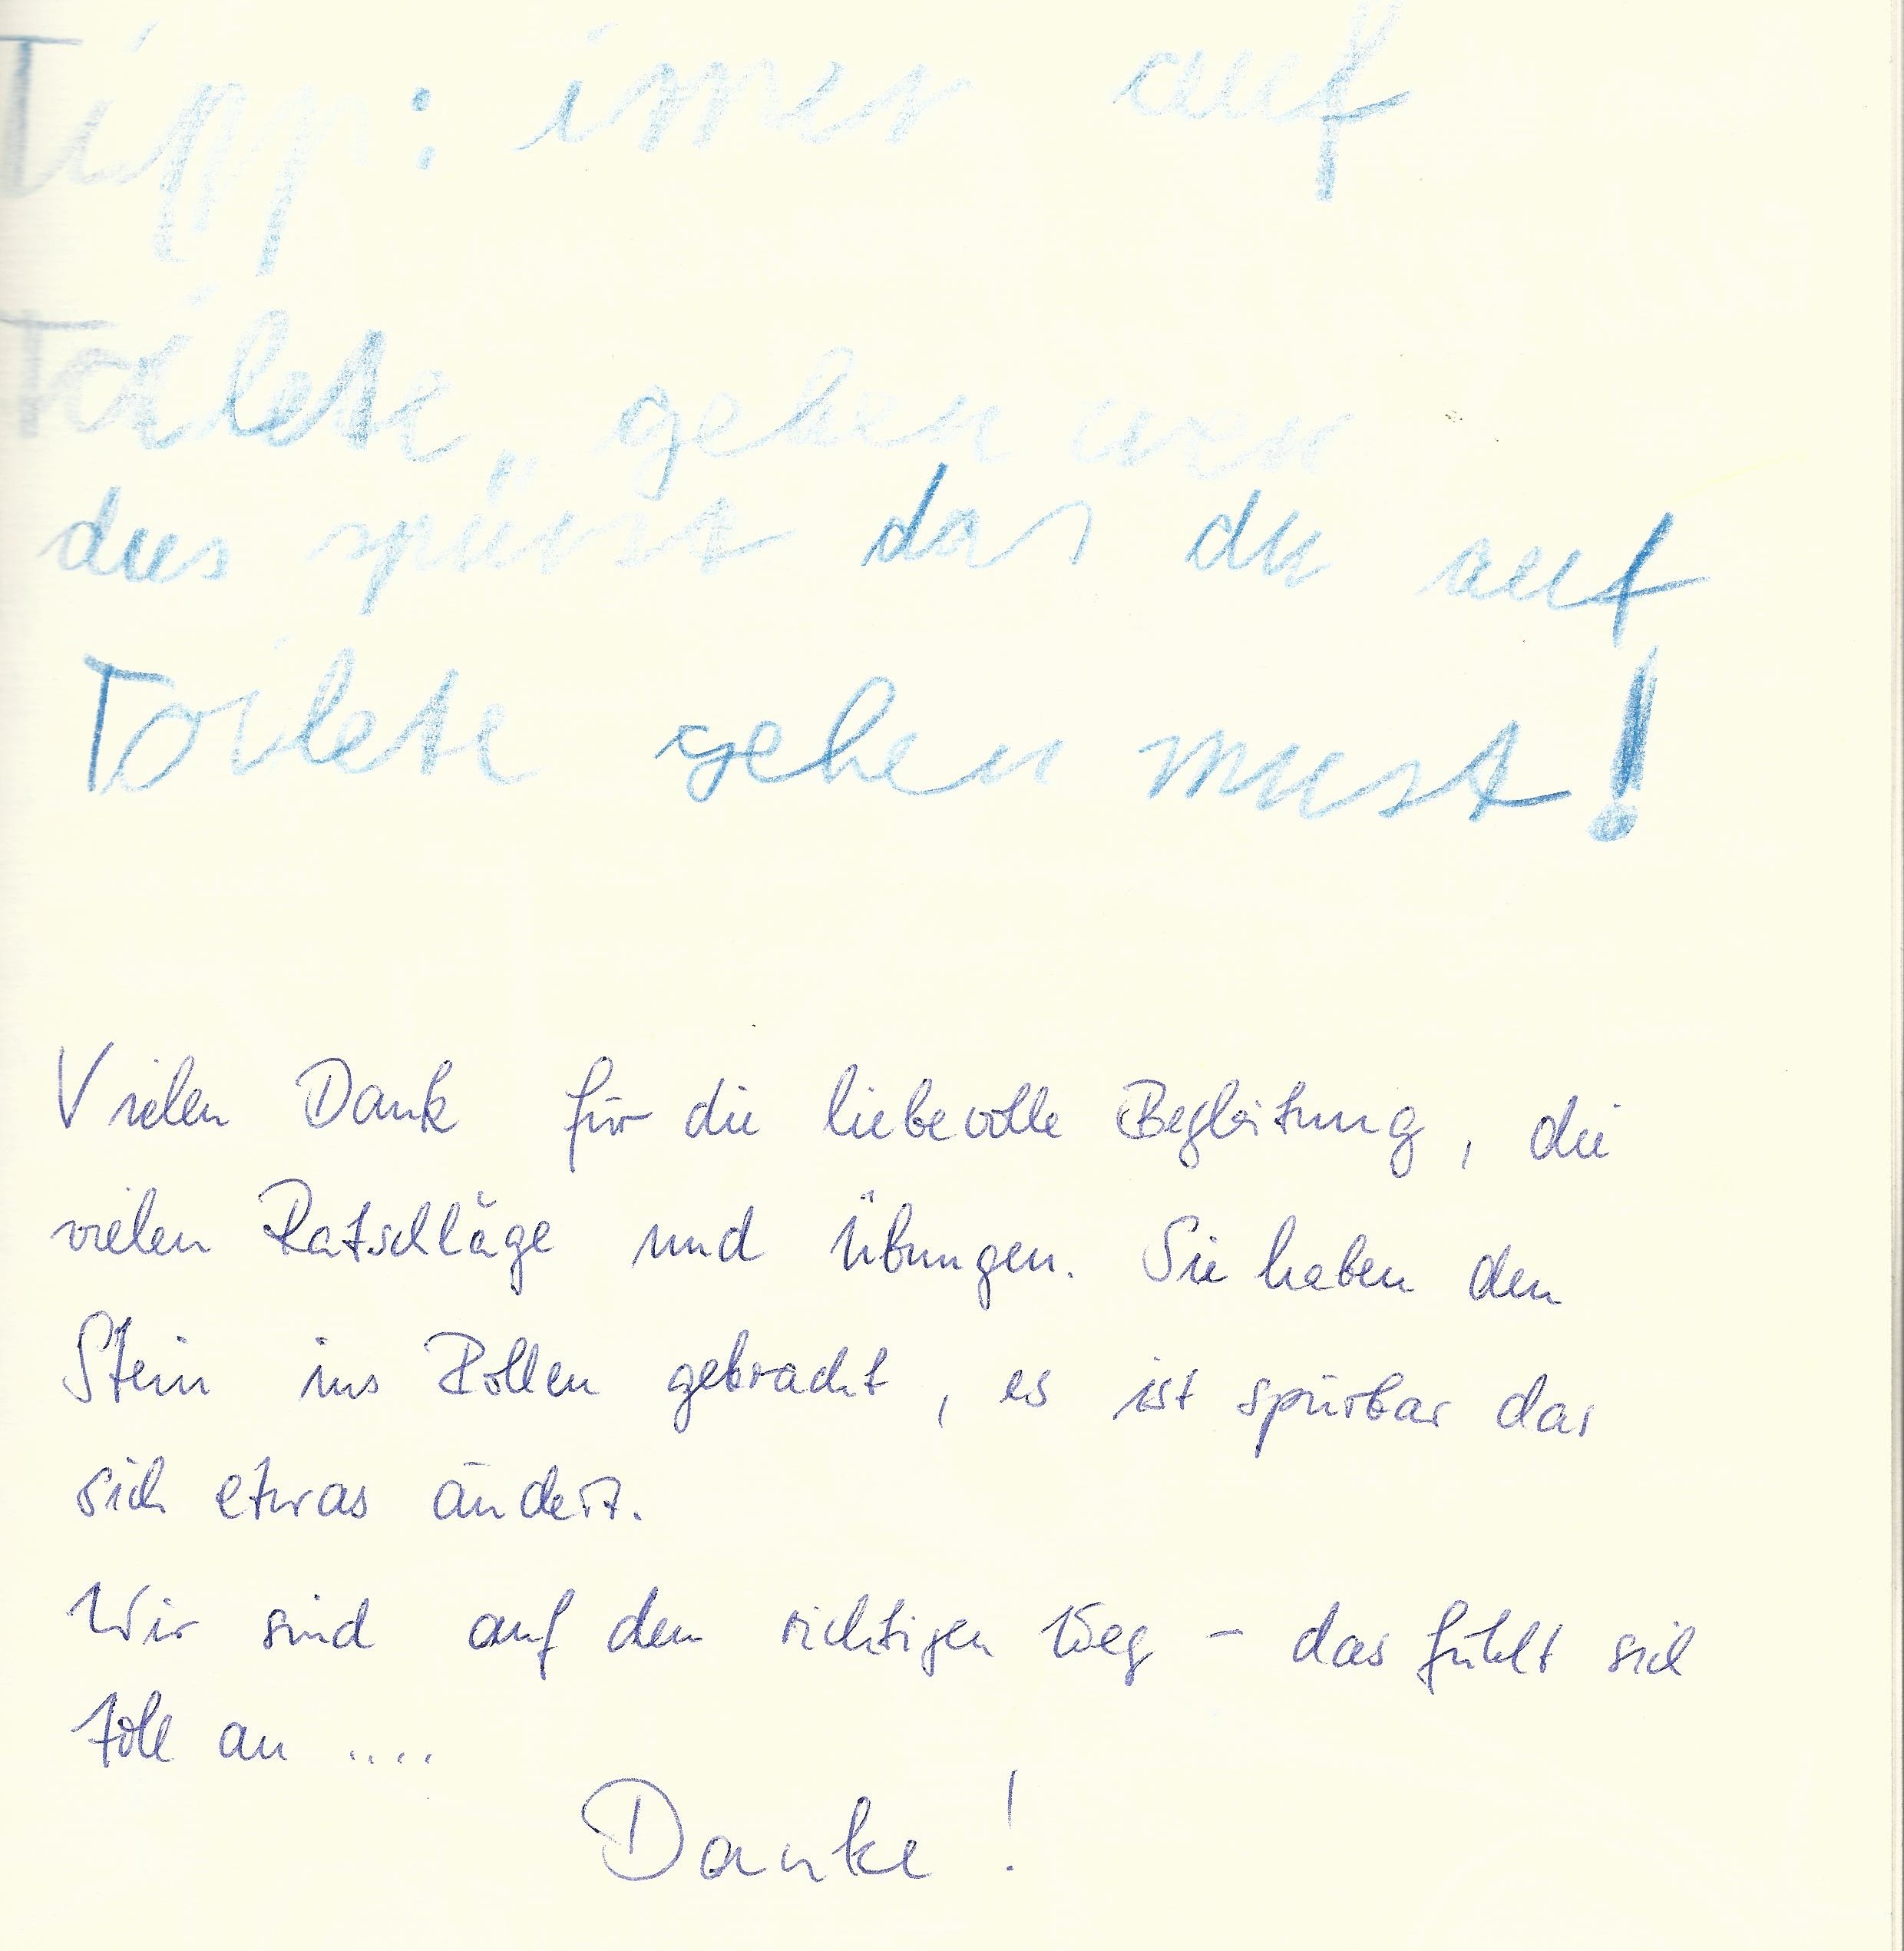 Tipp: immer auf
Toilete gehen wen
dus spürst das du auf
Toilete gehen must!
Vielen Dank für die liebevolle Begleitung, die
vielen Ratschläge und Übungen. Sie haben den
Stein ins Rollen gebracht, es ist spürbar das
sich etwas ändert.
Wir sind auf dem richtigen Weg - das fühlt sich
toll an ....
Danke!